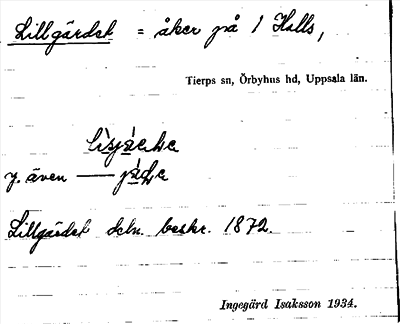 Lillgärdet = åker på 1 Halls,
Tierps sn, Örbyhus hd, Uppsala län.
y. även —
Lillgärdet deln. beskr. 1872.
Ingegärd Isaksson 1934.